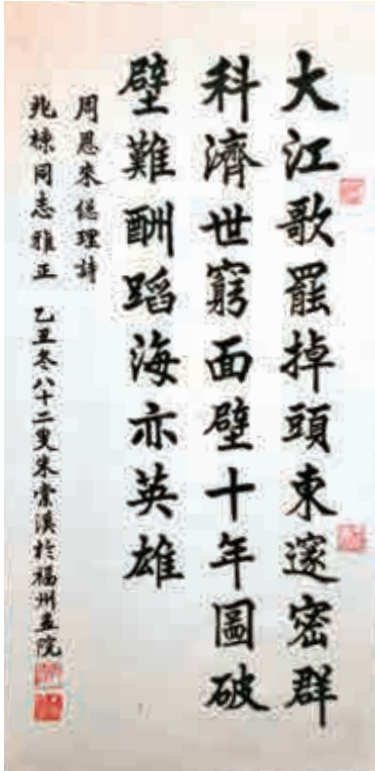 大江歌罷掉頭東邃密群
科濟世窮面壁十年圖破
壁難酬蹈海亦英雄
周恩來總理詩
兆棟同志雅正
乙丑冬八十二叟朱棠溪於福州畫院